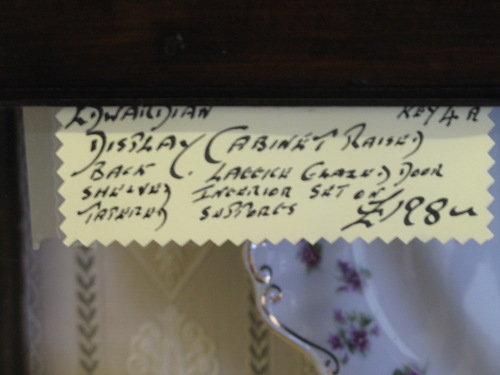 EDWARDIAN KEY 4 R
DISPLAY CABINET RAISED
BACK. LATTICE GLAZED DOOR
SHELVED INTERIOR SET ON
TAPERED SUPPORTS £198